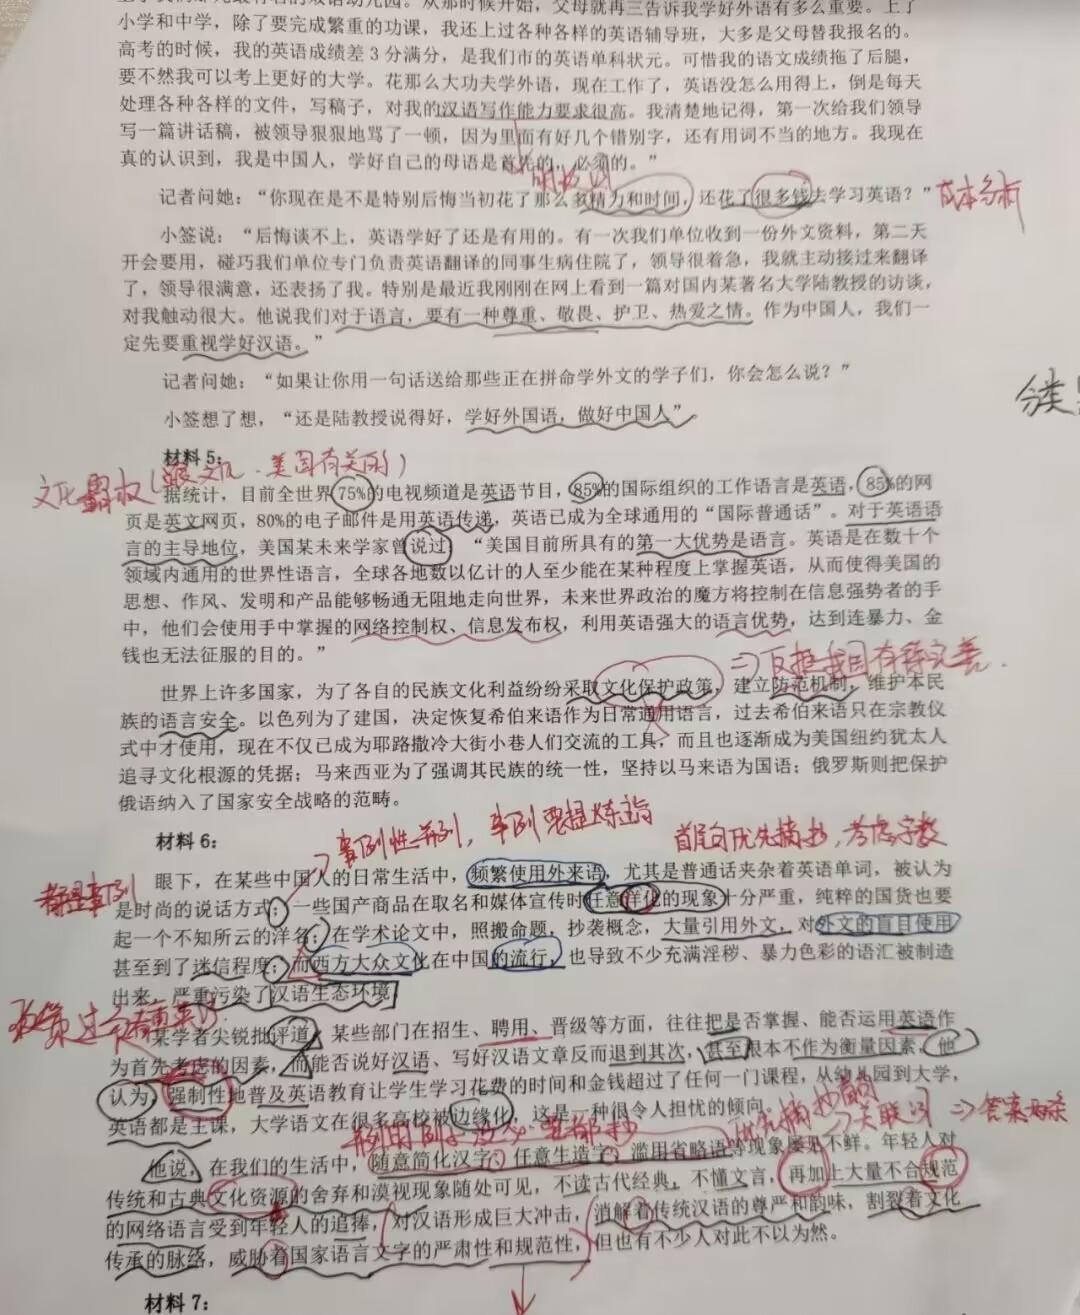 从那时候开始，父母就再三告诉我学好外语有多么重要。上了
小学和中学，除了要完成繁重的功课，我还上过各种各样的英语辅导班，大多是父母替我报名的。
高考的时候，我的英语成绩差3分满分，是我们市的英语单科状元。可惜我的语文成绩拖了后腿，
要不然我可以考上更好的大学。花那么大功夫学外语，现在工作了，英语没怎么用得上，倒是每天
处理各种各样的文件，写稿子，对我的汉语写作能力要求很高。我清楚地记得，第一次给我们领导
写一篇讲话稿，被领导狠狠地骂了一顿，因为里面有好几个错别字，还有用词不当的地方。我现在
真的认识到，我是中国人，学好自己的母语是首先的，必须的。”
记者问她：“你现在是不是特别后悔当初花了那么多精力和时间，还花了很多钱去学习英语？” 成本分析
小签说：“后悔谈不上，英语学好了还是有用的。有一次我们单位收到一份外文资料，第二天
开会要用，碰巧我们单位专门负责英语翻译的同事生病住院了，领导很着急，我就主动接过来翻译
了，领导很满意，还表扬了我。特别是最近我刚刚在网上看到一篇对国内某著名大学陆教授的访谈，
对我触动很大。他说我们对于语言，要有一种尊重、敬畏、护卫、热爱之情。作为中国人，我们一
定先要重视学好汉语。”
记者问她：“如果让你用一句话送给那些正在拼命学外文的学子们，你会怎么说？”
小签想了想，“还是陆教授说得好，学好外国语，做好中国人”
分类
材料5：
文化霸权（跟文化、美国有关的）
据统计，目前全世界75%的电视频道是英语节目，85%的国际组织的工作语言是英语，85%的网
页是英文网页，80%的电子邮件是用英语传递，英语已成为全球通用的“国际普通话”。对于英语语
言的主导地位，美国某未来学家曾说过：“美国目前所具有的第一大优势是语言。英语是在数十个
领域内通用的世界性语言，全球各地数以亿计的人至少能在某种程度上掌握英语，从而使得美国的
思想、作风、发明和产品能够畅通无阻地走向世界，未来世界政治的魔方将控制在信息强势者的手
中，他们会使用手中掌握的网络控制权、信息发布权，利用英语强大的语言优势，达到连暴力、金
钱也无法征服的目的。”
反推我国有待完善.
世界上许多国家，为了各自的民族文化利益纷纷采取文化保护政策，建立防范机制，维护本民
族的语言安全。以色列为了建国，决定恢复希伯来语作为日常通用语言，过去希伯来语只在宗教仪
式中才使用，现在不仅已成为耶路撒冷大街小巷人们交流的工具，而且也逐渐成为美国纽约犹太人
追寻文化根源的凭据；马来西亚为了强调其民族的统一性，坚持以马来语为国语；俄罗斯则把保护
俄语纳入了国家安全战略的范畴。
材料6：
案例性并列，案例要提炼主旨
首尾句优先摘抄，考虑字数
都是案例
眼下，在某些中国人的日常生活中，频繁使用外来语，尤其是普通话夹杂着英语单词，被认为
是时尚的说话方式；一些国产商品在取名和媒体宣传时任意洋化的现象十分严重，纯粹的国货也要
起一个不知所云的洋名；在学术论文中，照搬命题，抄袭概念，大量引用外文，对外文的盲目使用
甚至到了迷信程度；而西方大众文化在中国的流行，也导致不少充满淫秽、暴力色彩的语汇被制造
出来，严重污染了汉语生态环境
某学者尖锐批评道，某些部门在招生、聘用、晋级等方面，往往把是否掌握、能否运用英语作
为首先考虑的因素，而能否说好汉语、写好汉语文章反而退到其次，甚至根本不作为衡量因素，他
认为，强制性地普及英语教育让学生学习花费的时间和金钱超过了任何一门课程，从幼儿园到大学，
英语都是主课，大学语文在很多高校被边缘化，这是一种很令人担忧的倾向。
他说，在我们的生活中，随意简化汉字、任意生造字、滥用省略语等现象屡见不鲜。年轻人对
传统和古典文化资源的舍弃和漠视现象随处可见，不读古代经典，不懂文言，再加上大量不合规范
的网络语言受到年轻人的追捧，对汉语形成巨大冲击，消解着传统汉语的尊严和韵味，割裂着文化
传承的脉络，威胁着国家语言文字的严肃性和规范性，但也有不少人对此不以为然。
材料7：